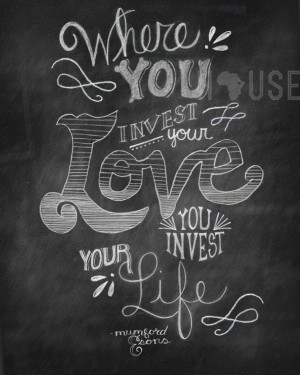 Where
YOU
INVEST
your
Love
YOU
INVEST
YOUR
Life
-mumford
& sons